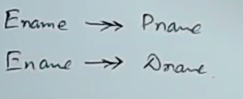 Ename ->> Pname
Ename ->> Dname